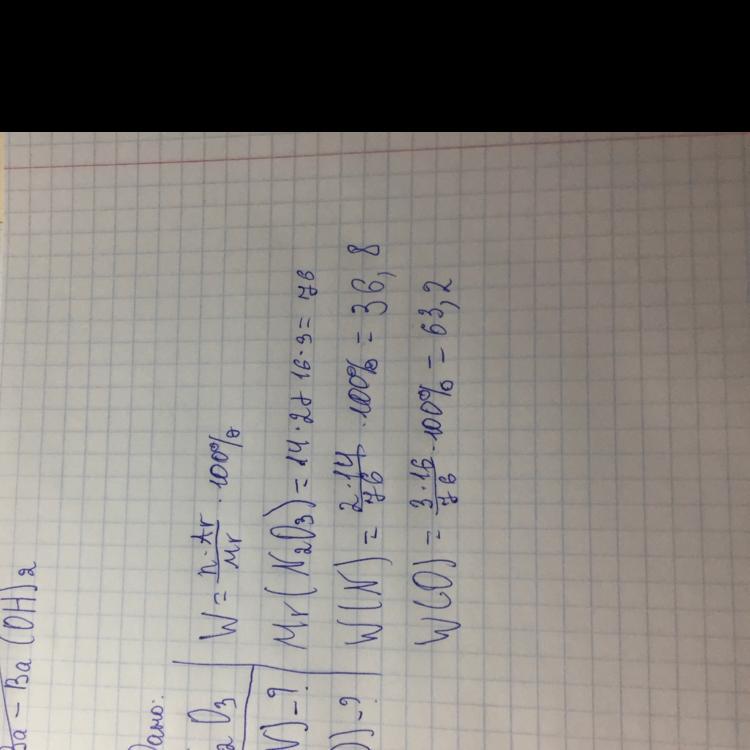 Ba - Ba(OH)2
Дано:
2O3
W = n·Ar/Mr · 100%
)-?
Mr(N2O3) = 14·2+16·3 = 76
)-?
W(N) = 2·14/76 · 100% = 36,8
W(O) = 3·16/76 · 100% = 63,2